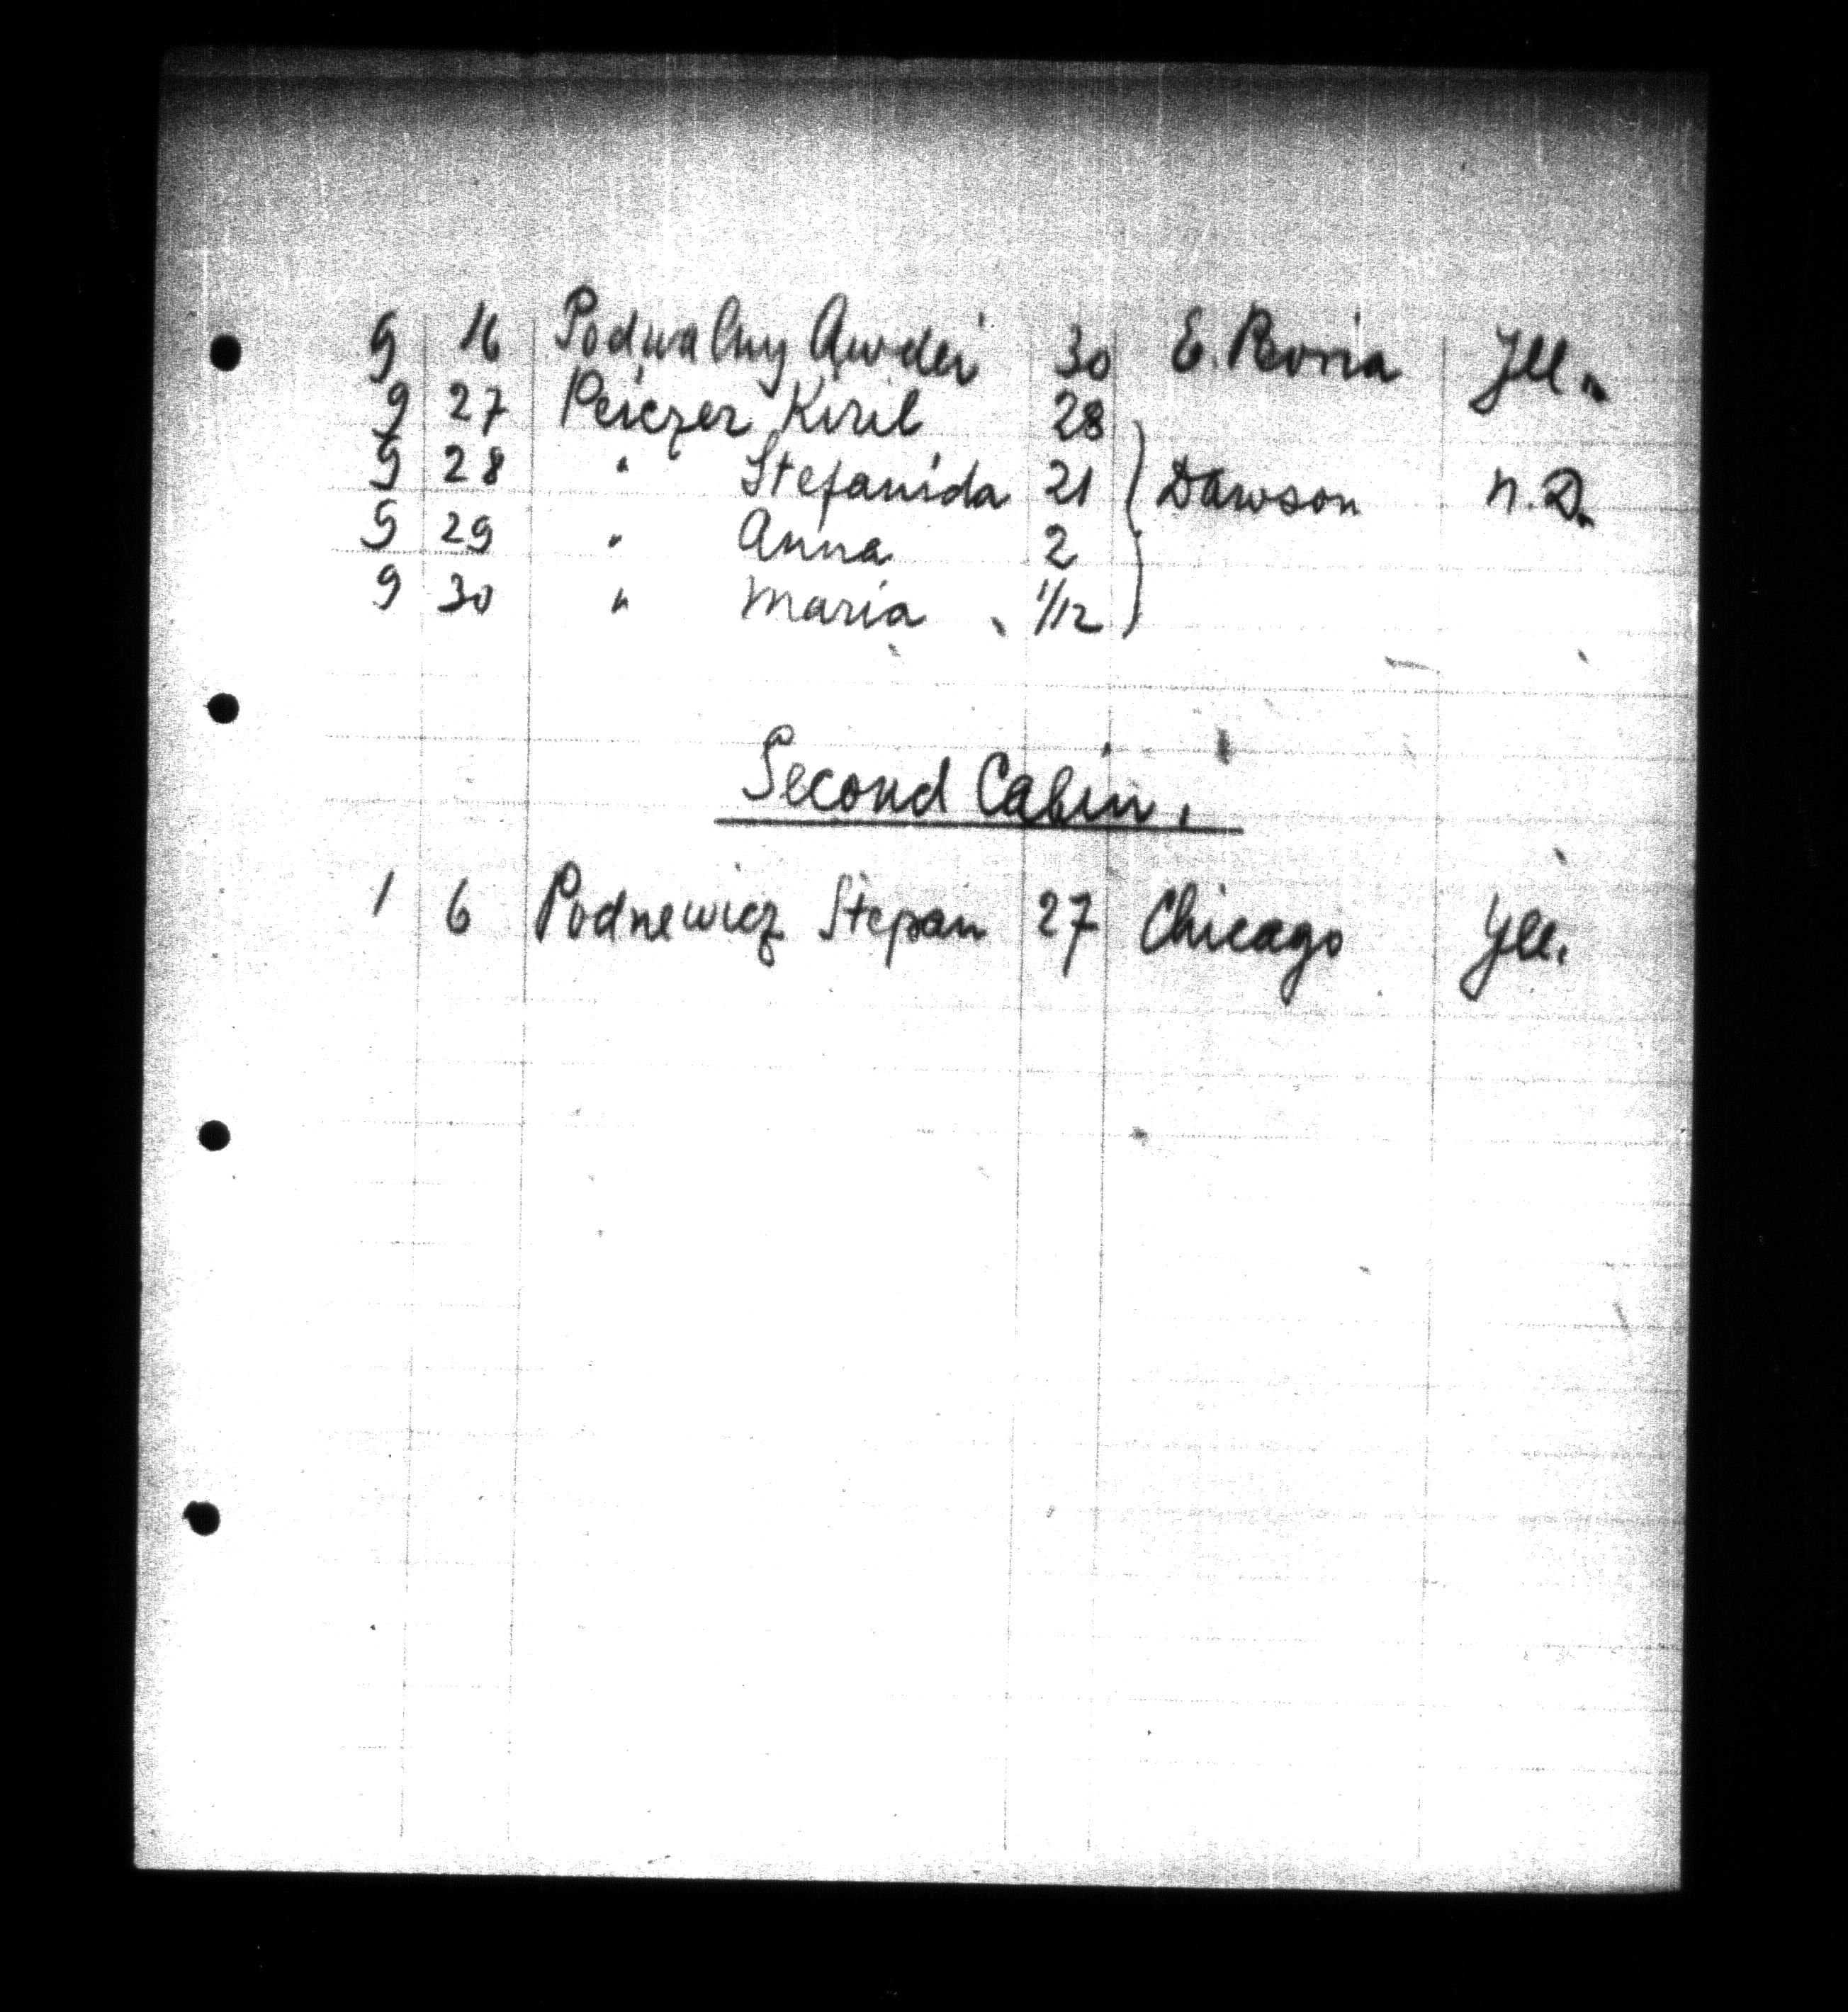 9 16 Podwalny Awdei 30 E. Peoria Ill.
9 27 Peiczer Kiril 28
9 28 " Stefanida 21 Dawson N.D.
9 29 " Anna 2
9 30 " Maria 1/12
Second Cabin.
1 6 Podnewicz Stepan 27 Chicago Ill.